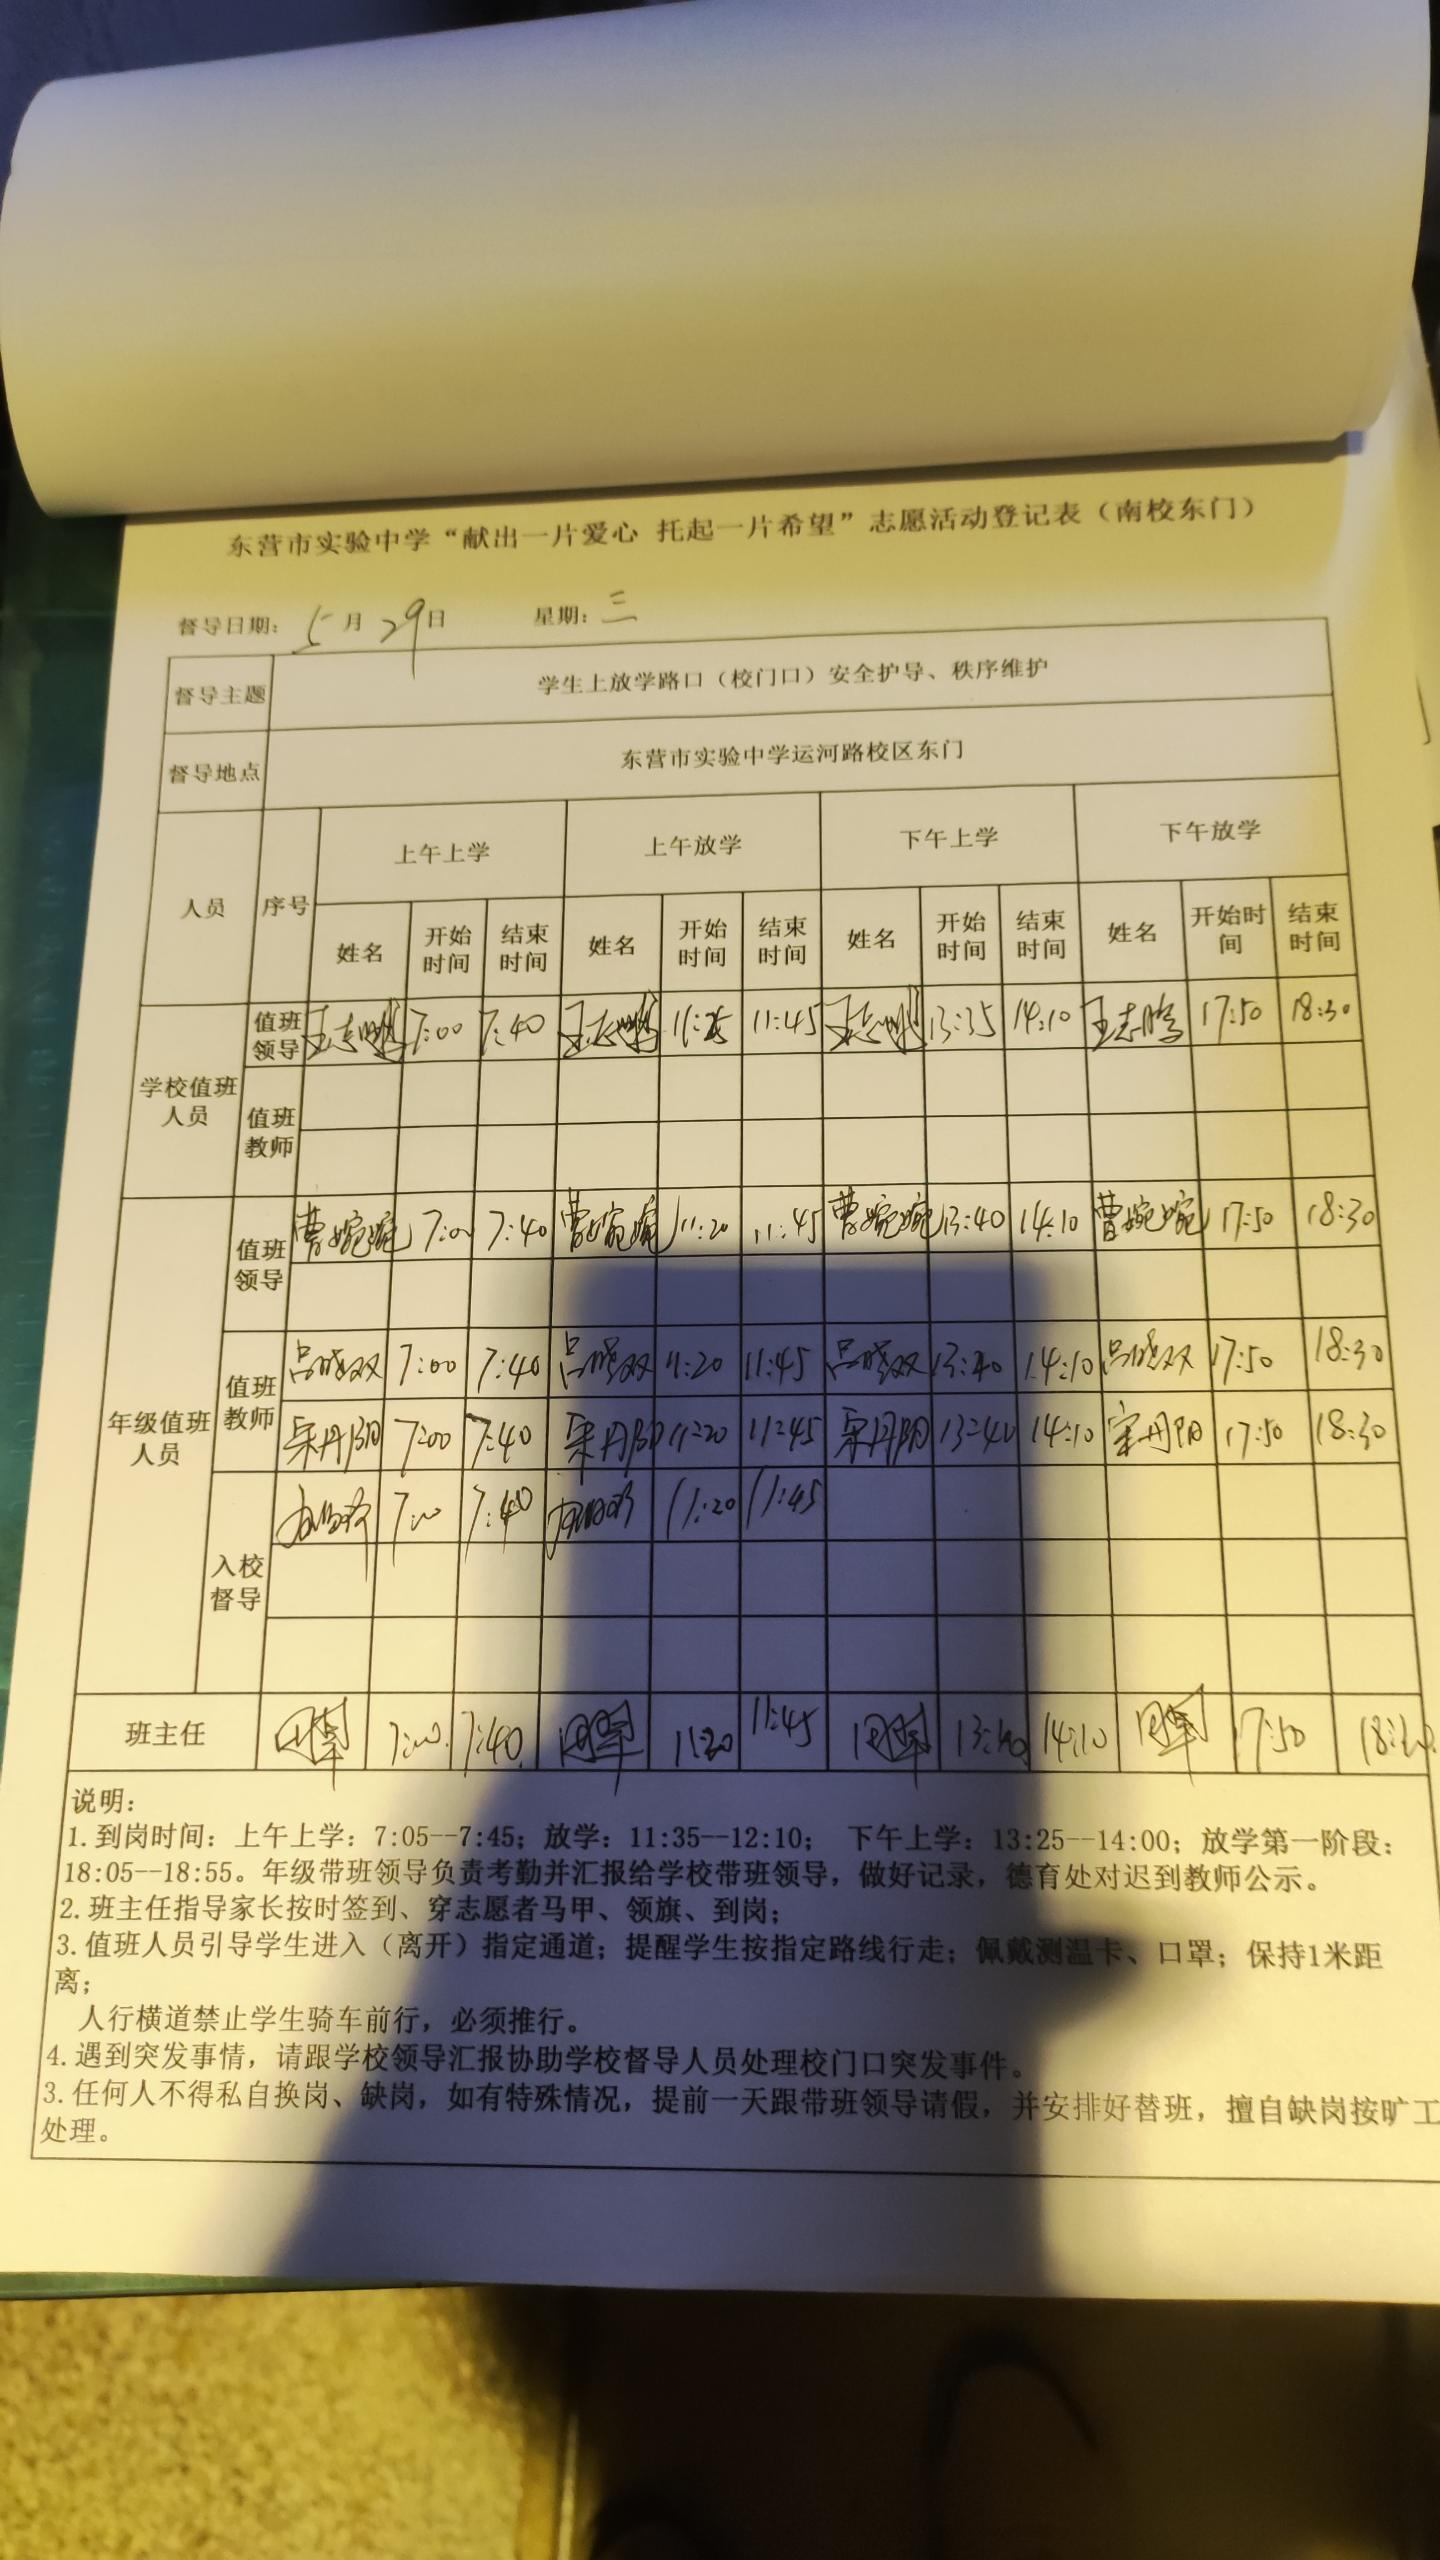 东营市实验中学“献出一片爱心 托起一片希望”志愿活动登记表（南校东门）
督导日期： 5月29日 星期：三
督导主题 学生上放学路口（校门口）安全护导、秩序维护
督导地点 东营市实验中学运河路校区东门
人员 序号 上午上学 上午放学 下午上学 下午放学
姓名 开始时间 结束时间 姓名 开始时间 结束时间 姓名 开始时间 结束时间 姓名 开始时间 结束时间
学校值班人员 值班领导 王志鹏 7:00 7:40 王志鹏 11:45 王志鹏 13:35 14:10 王志鹏 17:50 18:30
值班教师
年级值班人员 值班领导 曹婉婉 7:00 7:40 曹婉婉 11:20 11:45 曹婉婉 13:40 14:10 曹婉婉 17:50 18:30
值班教师 吕晓双 7:00 7:40 吕晓双 11:20 11:45 吕晓双 13:40 14:10 吕晓双 17:50 18:30
宋丹阳 7:00 7:40 宋丹阳 11:20 11:45 宋丹阳 13:40 14:10 宋丹阳 17:50 18:30
入校督导 7:00 7:40 11:20 11:45
班主任 7:00 7:40 11:20 11:45 13:40 14:10 17:50 18:30
说明：
1.到岗时间：上午上学：7:05--7:45；放学：11:35--12:10； 下午上学：13:25--14:00；放学第一阶段：
18:05--18:55。年级带班领导负责考勤并汇报给学校带班领导，做好记录，德育处对迟到教师公示。
2.班主任指导家长按时签到、穿志愿者马甲、领旗、到岗；
3.值班人员引导学生进入（离开）指定通道；提醒学生按指定路线行走；佩戴测温卡、口罩；保持1米距
离；
人行横道禁止学生骑车前行，必须推行。
4.遇到突发事情，请跟学校领导汇报协助学校督导人员处理校门口突发事件。
3.任何人不得私自换岗、缺岗，如有特殊情况，提前一天跟带班领导请假，并安排好替班，擅自缺岗按旷工
处理。